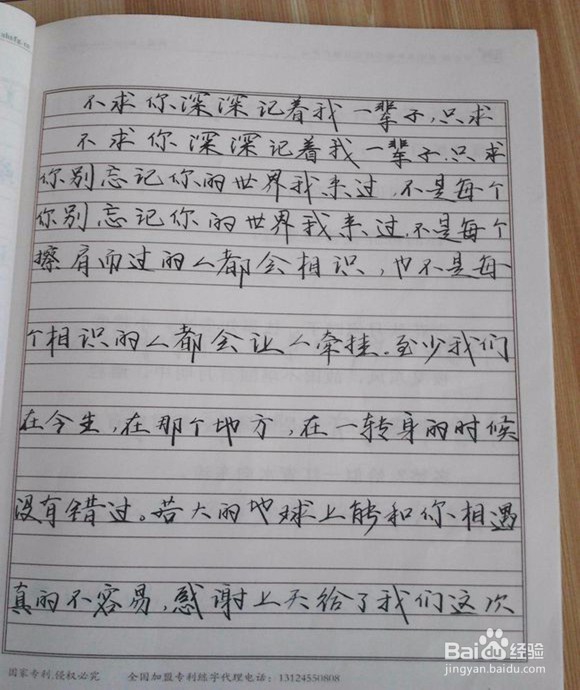 不求你深深记着我一辈子,只求
不求你深深记着我一辈子.只求
你别忘记你的世界我来过,不是每个
你别忘记你的世界我来过.不是每个
擦肩而过的人都会相识,也不是每
个相识的人都会让人牵挂.至少我们
在今生,在那个地方,在一转身的时候
没有错过。若大的地球上能和你相遇
真的不容易,感谢上天给了我们这次
国家专利,侵权必究 全国加盟专利练字代理电话:13124550808
Baidu经验
jingyan.baidu.com